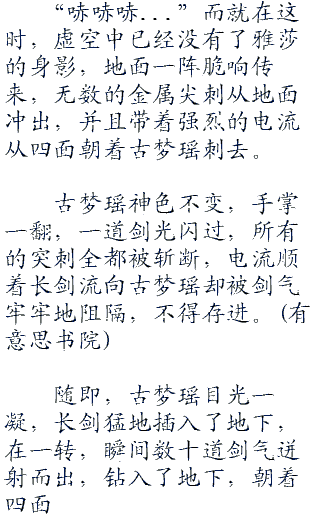 “哧哧哧...”而就在这
时，虚空中已经没有了雅莎
的身影，地面一阵脆响传
来，无数的金属尖刺从地面
冲出，并且带着强烈的电流
从四面朝着古梦瑶刺去。
古梦瑶神色不变，手掌
一翻，一道剑光闪过，所有
的突刺全都被斩断，电流顺
着长剑流向古梦瑶却被剑气
牢牢地阻隔，不得存进。(有
意思书院)
随即，古梦瑶目光一
凝，长剑猛地插入了地下，
在一转，瞬间数十道剑气迸
射而出，钻入了地下，朝着
四面